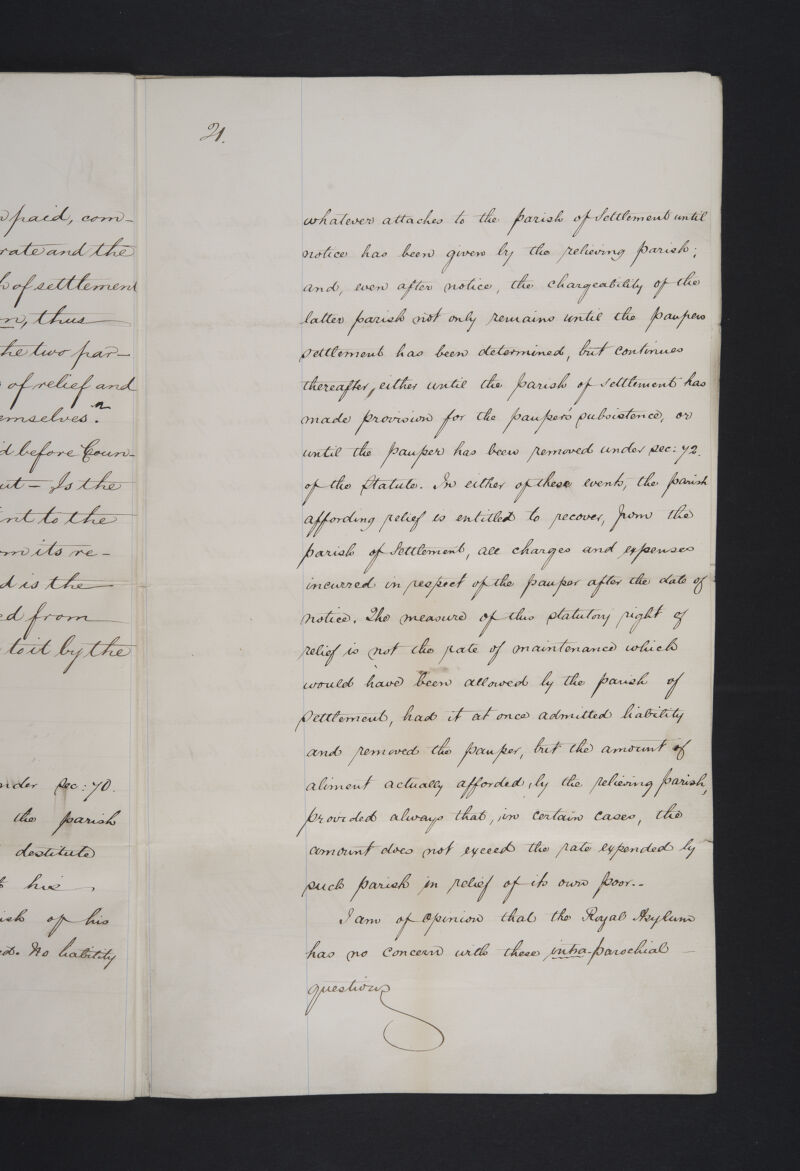 paid, com-
rate and the
of settlement
on, thus
he two par-
of relief and
emselves?"
d before Coun-
ut - Is the
nt to the
om its re-
d is the
ed from
to it by the
nder sec: 70.
the parish
destitute
his
ish of his
ed. No liability
21.
whatever attaches to the parish of settlement until
notice has been given by the relieving parish;
and, even after notice, the chargeability of the
latter parish not only remains until the paupers
settlement has been determined, but continues
thereafter, either until the parish of settlement has
made provision for the pauper's subsistence, or
until the pauper has been removed under sec: 72.
of the Statute. In either of these events, the parish
affording relief is entitled to recover, from the
parish of Settlement, all charges and expenses
incurred in respect of the pauper after the date of
notice. The measure of this statutory right of
relief is not the rate of maintenance which
would have been allowed by the parish of
settlement, had it at once admitted liability
and removed the pauper, but the amount of
aliment actually afforded, by the relieving parish,
provided always that, in certain cases, the
amount does not exceed the rate expended by
such parish in relief of its own poor..
I am of Opinion that the Royal Asylum
has no concern with these intra-parochial
questions